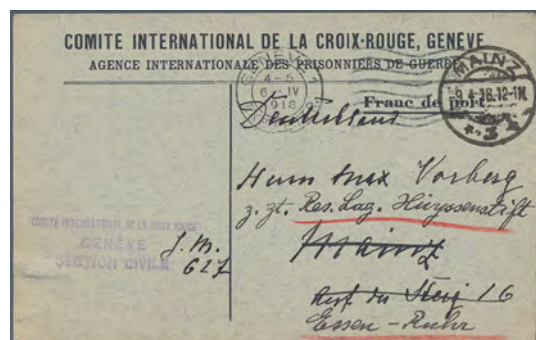 COMITÉ INTERNATIONAL DE LA CROIX-ROUGE, GENÈVE
AGENCE INTERNATIONALE DES PRISONNIERS DE GUERRE
GENÈVE 1
4-5
6 IV
1918
MAINZ
9.4.18.12-1N.
* 3
Franc de port.
Deutschland
Herrn Max Vorberg
z. Zt. Res. Laz. Huyssenstift
Mainz
Auf der Steig 16
Essen-Ruhr
COMITÉ INTERNATIONAL DE LA CROIX-ROUGE
GENÈVE
SECTION CIVILE
J. M.
627